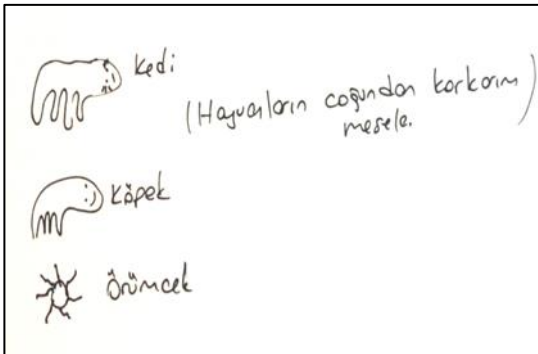 kedi
(Hayvanların coğundan korkarım
mesela.)
köpek
Örümcek